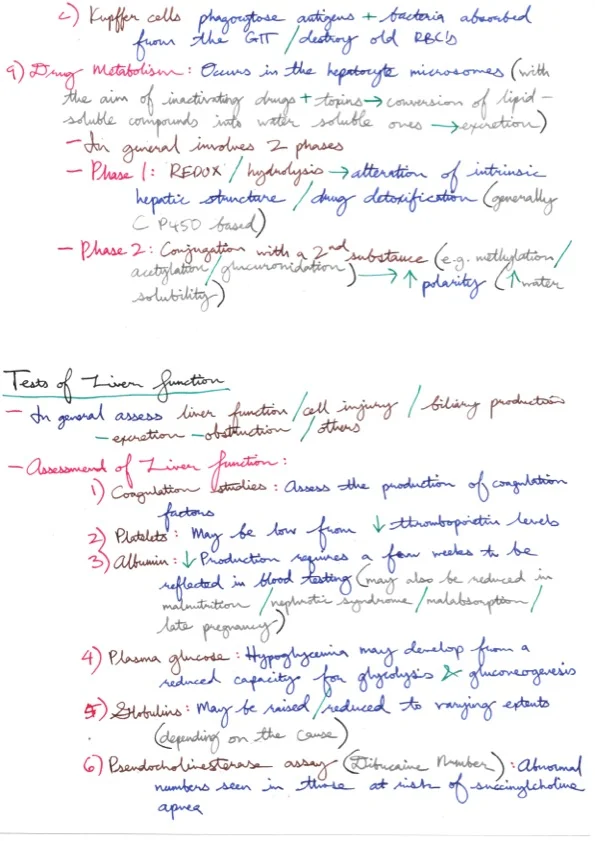 c) Kupffer cells phagocytose antigens + bacteria absorbed
from the GIT / destroy old RBC's
9) Drug Metabolism: Occurs in the hepatocyte microsomes (with
the aim of inactivating drugs + toxins → conversion of lipid-
soluble compounds into water soluble ones → excretion)
- In general involves 2 phases
- Phase 1: REDOX / hydrolysis → alteration of intrinsic
hepatic structure / drug detoxification (generally
C P450 based)
- Phase 2: Conjugation with a 2nd substance (e.g. methylation/
acetylation / glucuronidation) → ↑ polarity (↑ water
solubility)
Tests of Liver function
- In general assess liver function / cell injury / biliary production
- excretion - obstruction / others
- Assessment of Liver function:
1) Coagulation studies: Assess the production of coagulation
factors
2) Platelets: May be low from ↓ thrombopoietin levels
3) Albumin: ↓ Production requires a few weeks to be
reflected in blood testing (may also be reduced in
malnutrition / nephrotic syndrome / malabsorption /
late pregnancy)
4) Plasma glucose: Hypoglycemia may develop from a
reduced capacity for glycolysis & gluconeogenesis
5) Globulins: May be raised / reduced to varying extents
(depending on the cause)
6) Pseudocholinesterase assay (Dibucaine Number): Abnormal
numbers seen in those at risk of succinylcholine
apnea